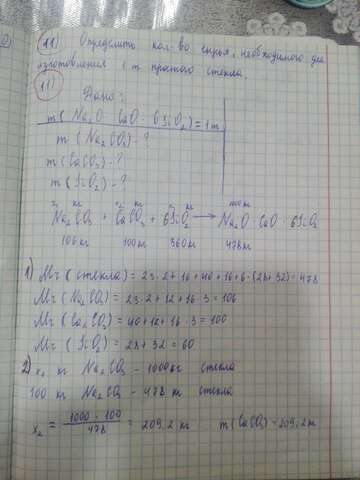 11) Определить кол-во сырья, необходимого для
изготовления 1 т простого стекла.
11)
Дано:
m(Na2O · CaO · 6SiO2) = 1т
m(Na2CO3) - ?
m(CaCO3) - ?
m(SiO2) - ?
x1 кг x2 кг x3 кг 1000 кг
Na2CO3 + CaCO3 + 6SiO2 → Na2O · CaO · 6SiO2
106 кг 100 кг 360 кг 478 кг
1) Mr(стекла) = 23·2 + 16 + 40 + 16 + 6·(28+32) = 478
Mr(Na2CO3) = 23·2 + 12 + 16·3 = 106
Mr(CaCO3) = 40 + 12 + 16·3 = 100
Mr(SiO2) = 28 + 32 = 60
2) x2 кг Na2CO3 – 1000 кг стекла
100 кг Na2CO3 – 478 кг стекла
x2 = 1000 · 100 / 478 = 209.2 кг m(CaCO3) - 209.2 кг